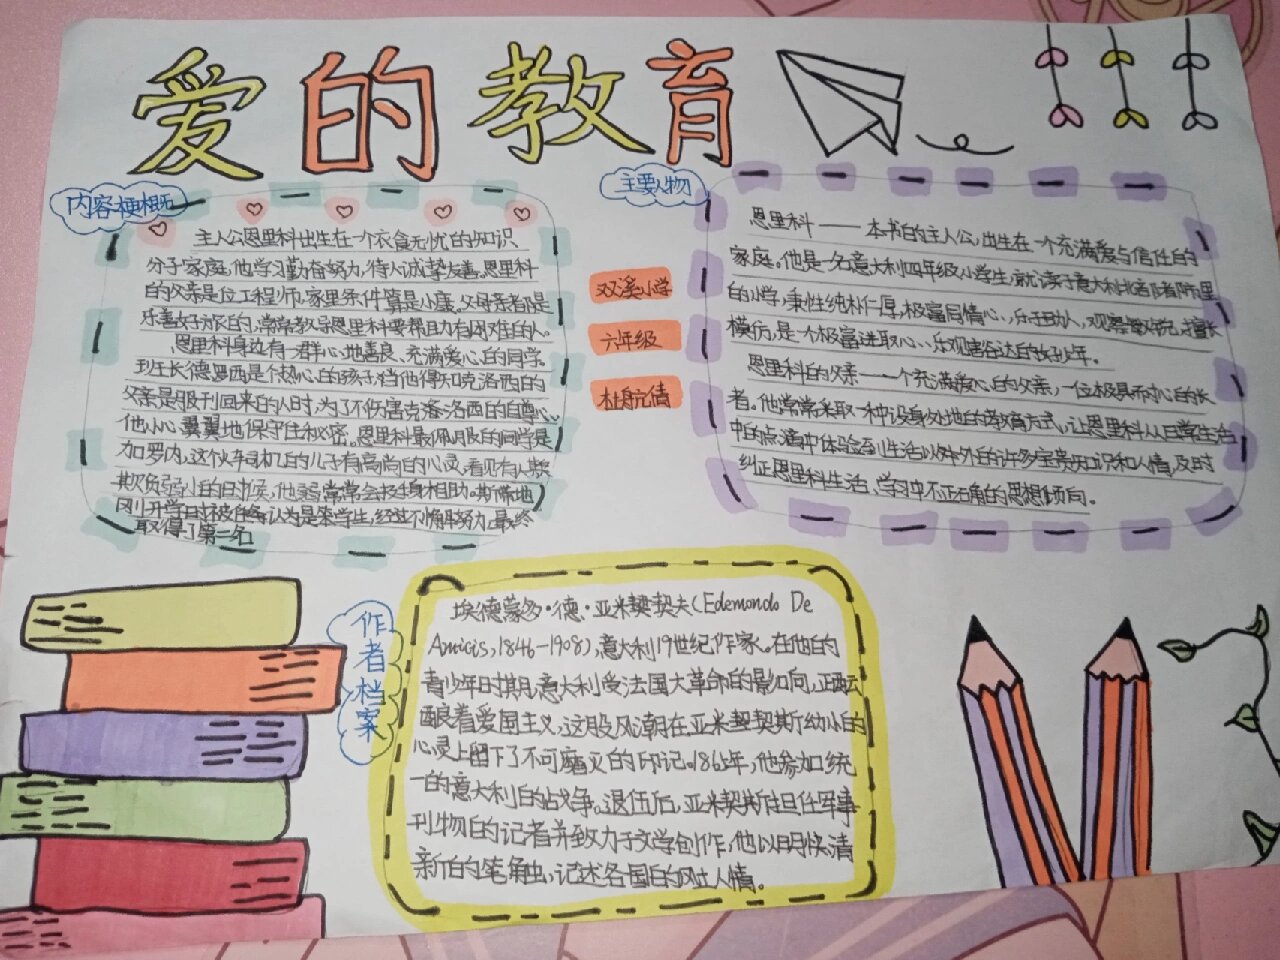 爱的教育
内容梗概
主人公恩里科出生在一个衣食无忧的知识
分子家庭,他学习勤奋努力,待人诚挚友善。恩里科
的父亲是位工程师,家里条件算是小康。父母亲都是
乐善好施的,常常教导恩里科要帮助有困难的人。
恩里科身边有一群心地善良、充满爱心的同学。
班长德罗西是个热心的孩子,当他得知克洛西的
父亲是服刑回来的人时,为了不伤害克洛洛西的自尊心,
他小心翼翼地保守住秘密。恩里科最佩服的同学是
加罗内,这个火车司机的儿子有高尚的心灵,看见有人欺
欺负弱小的时候,他常常会挺身相助。斯带地
刚升学时被
认为是笨学生,经过不懈努力,最终
取得了第二名
主要人物
恩里科——本书的主人公,出生在一个充满爱与信任的
家庭。他是一名意大利四年级小学生,就读于意大利北部都灵
的小学,秉性纯朴仁厚,极富同情心、乐于助人,观察敏锐,擅长
模仿,是一个极富进取心、乐观豁达的好少年。
恩里科的父亲——一个充满爱心的父亲,一位极具耐心的长
者。他常常采取一种设身处地的教育方式,让恩里科从日常生活
中的点滴中体验到生活以外的许多宝贵知识和人情,及时
纠正恩里科生活、学习中不正确的思想倾向。
双溪小学
六年级
杜航倩
作者档案
埃德蒙多·德·亚米契契夫(Edemondo De
Amicis,1846-1908),意大利19世纪作家。在他的
青少年时期,意大利受法国大革命的影响,正酝
酿着爱国主义,这股风潮在亚米契契斯幼小的
心灵上留下了不可磨灭的印记。1865年,他参加统
一的意大利的战争。退伍后,亚米契斯担任军事
刊物的记者并致力于文学创作,他以明快清
新的笔触,记述各国的风土人情。